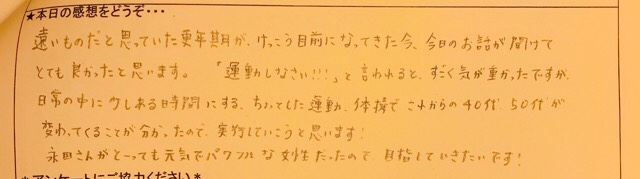 ★本日の感想をどうぞ・・・
遠いものだと思っていた更年期が、けっこう目前になってきた今、今日のお話が聞けて
とても良かったと思います。「運動しなさい!!!」と言われると、すごく気が重かったですが、
日常の中に少しある時間にする、ちょっとした運動、体操でこれからの40代50代が
変わってくることが分かったので、実行していこうと思います!
永田さんがとーっても元気でパワフルな女性だったので目指していきたいです!
*アンケートにご協力ください*